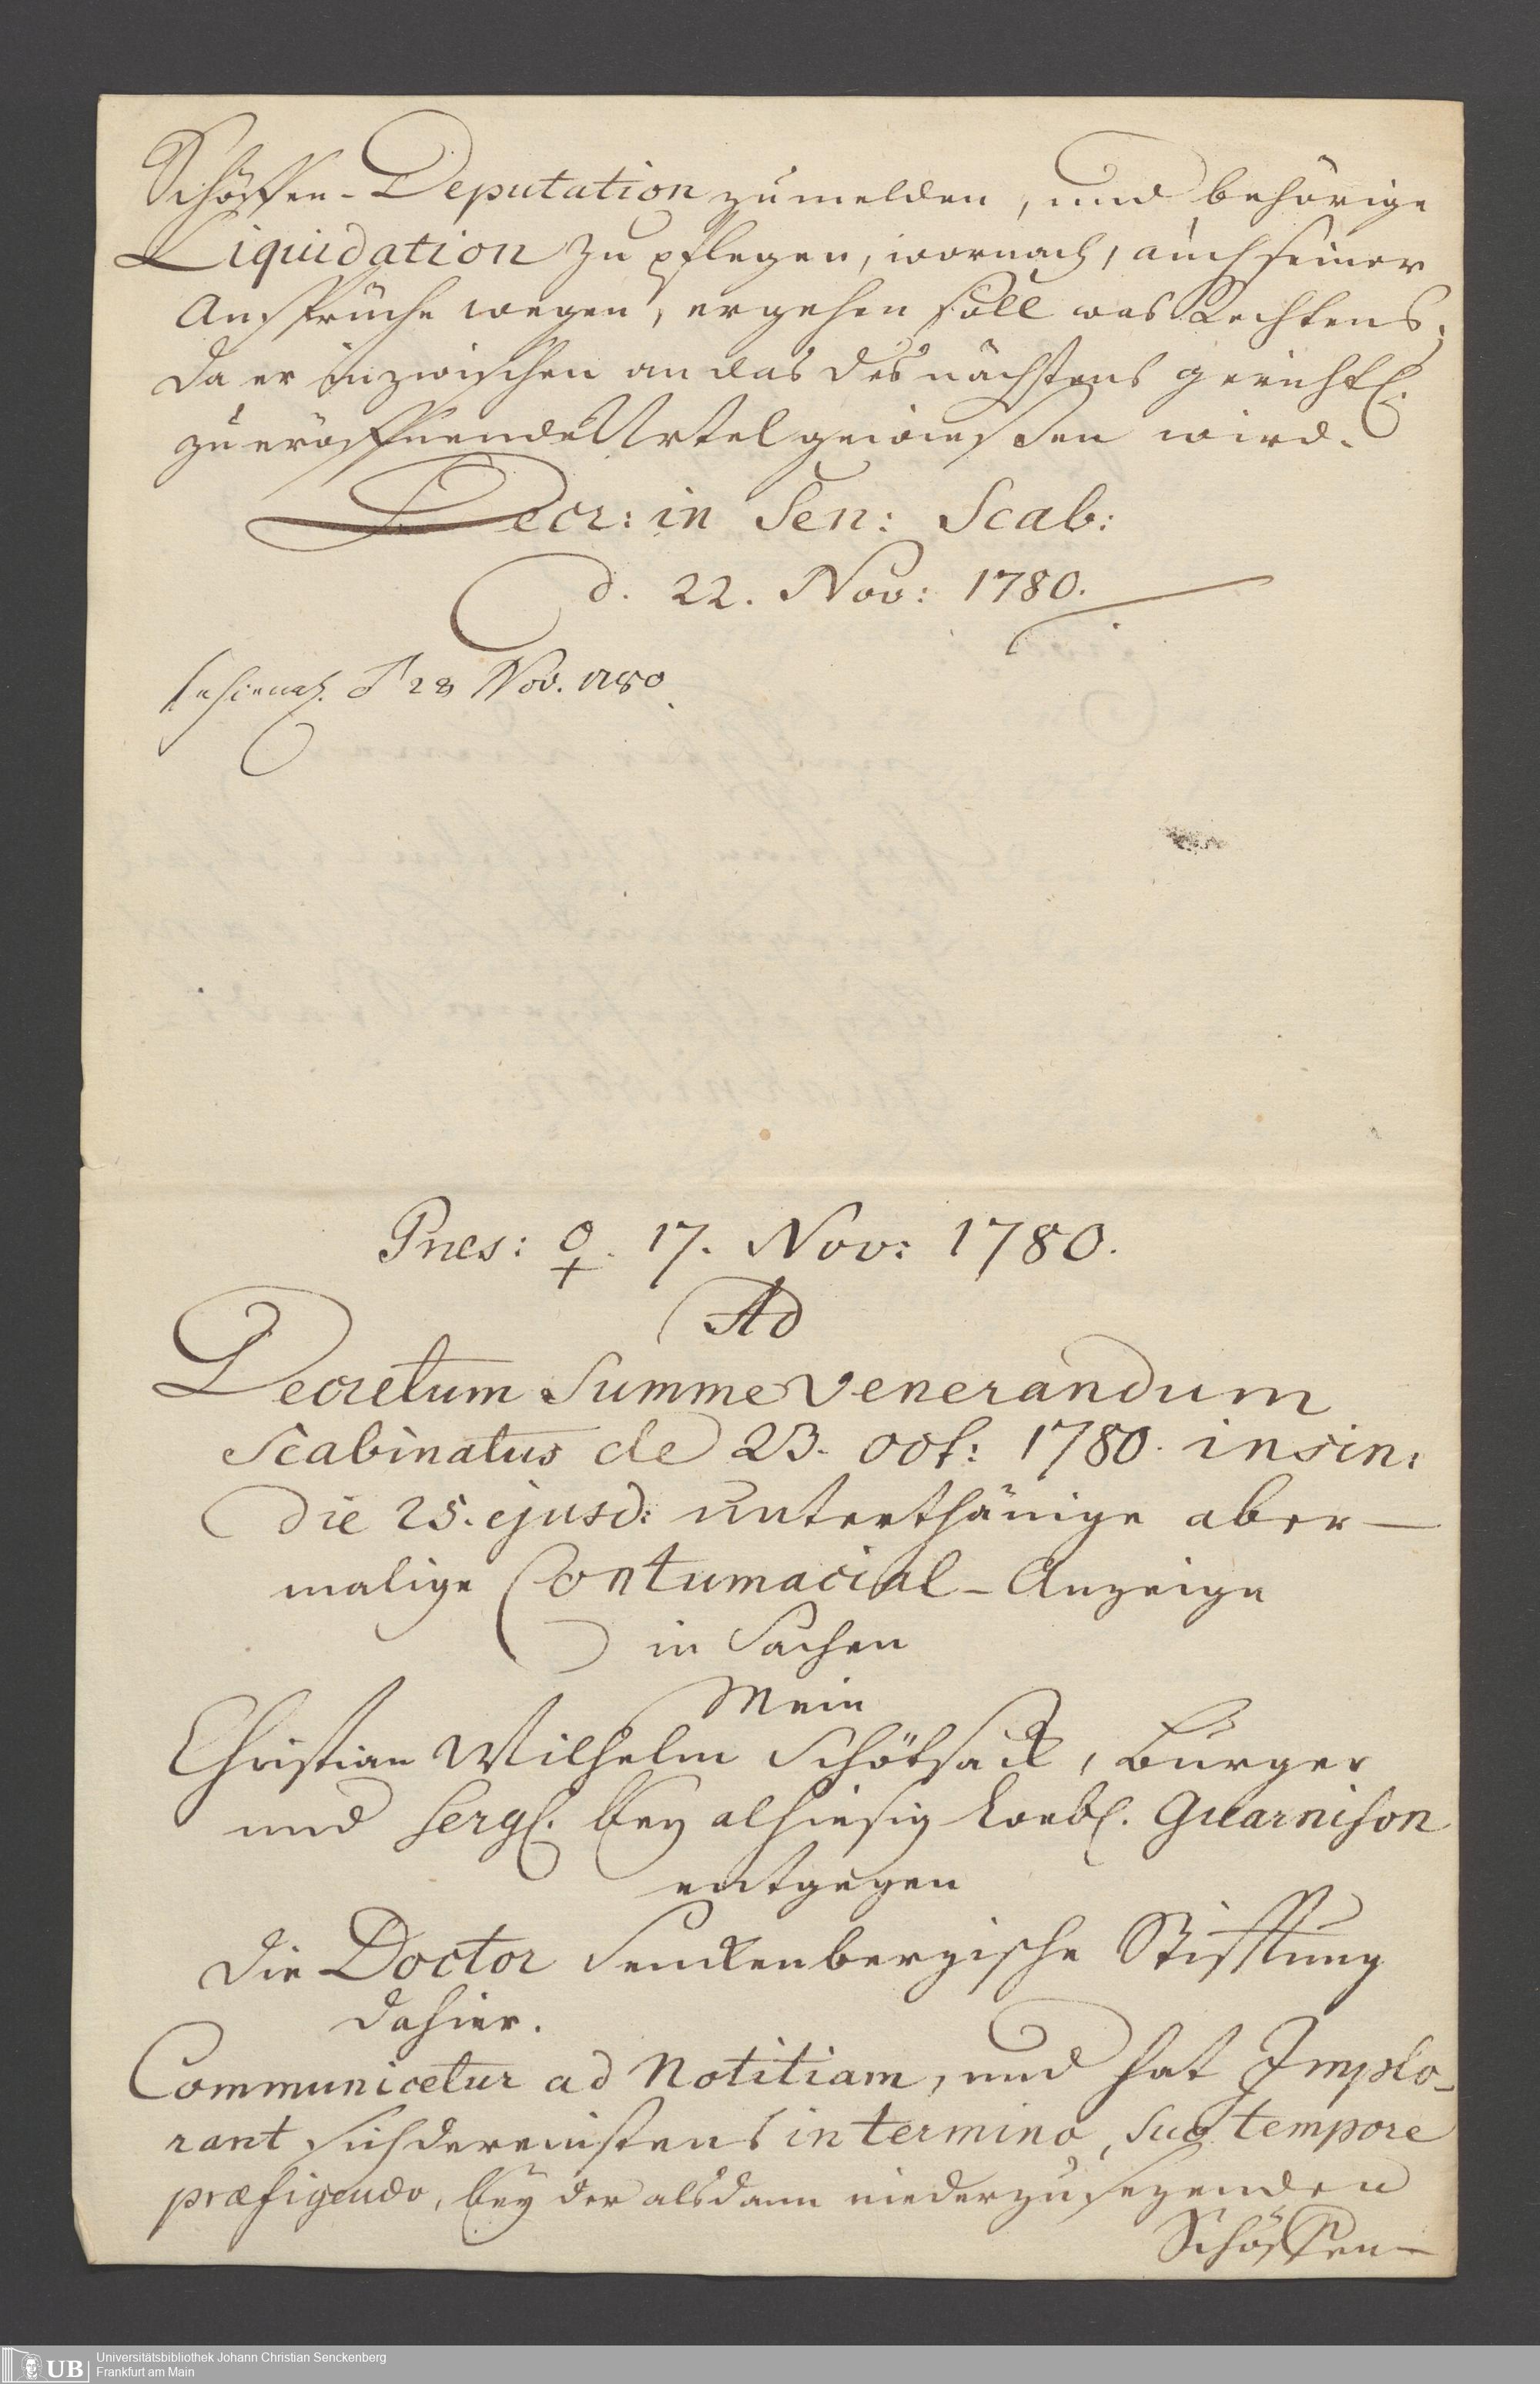 Schöffen-Deputation zu melden, und behörige
Liquidation zu pflegen, wornach, auch seiner
Ansprüche wegen, ergehen soll was Rechtens,
da er inzwischen an das des nächstens gerichtl.
zu eröffnende Urtel gewiesen wird.
Decr: in Sen: Scab:
d. 22. Nov: 1780.
♂ 28 Nov. 1780.
Pres: ♀. 17. Nov: 1780.
Ad
Decretum Summe Venerandum
Scabinatus de 23. oct: 1780. insin:
die 25. ejusd: unterthänige aber-
malige Contumacial-Anzeige
in Sachen
Mein
Christian Wilhelm Schötsack, Bürger
und Serg. bey alhiesig Loebl. Guarnison
entgegen
die Doctor Senckenbergische Stifftung
dahier.
Communicetur ad Notitiam, und hat Implo-
rant sich dereinstens in termino, suo tempore
præfigendo, bey der alsdann niederzusezenden
Schöffen-
UB Universitätsbibliothek Johann Christian Senckenberg
Frankfurt am Main